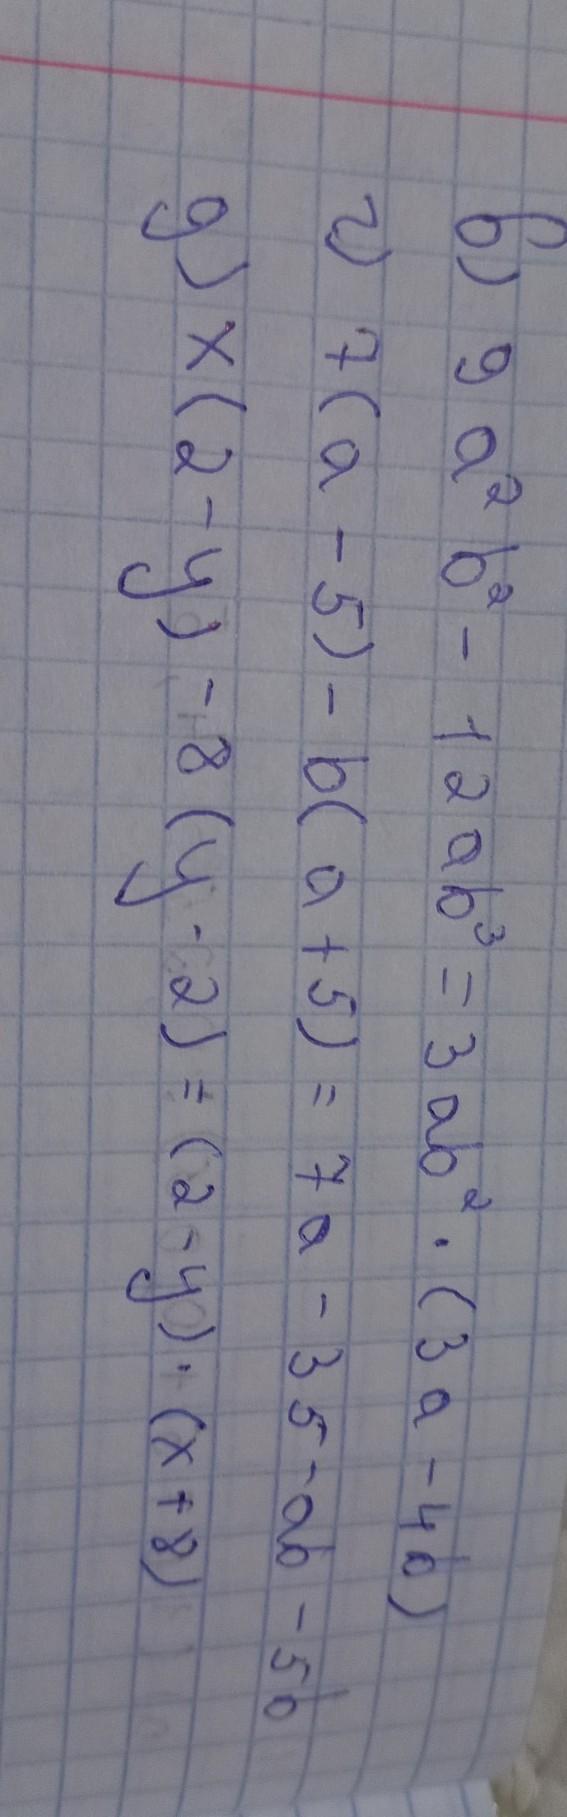 в) 9a²b² - 12ab³ = 3ab² · (3a - 4b)
г) 7(a - 5) - b(a + 5) = 7a - 35 - ab - 5b
д) x(2 - y) - 8(y - 2) = (2 - y) · (x + 8)